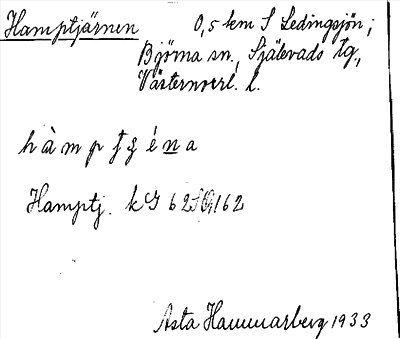 Hamptjärnen 0,5 km S Ledingsjön;
Björna sn., Själevads tg.,
Västernorrl. l.
Hamptj. kG 62SO162
Asta Hammarberg 1933